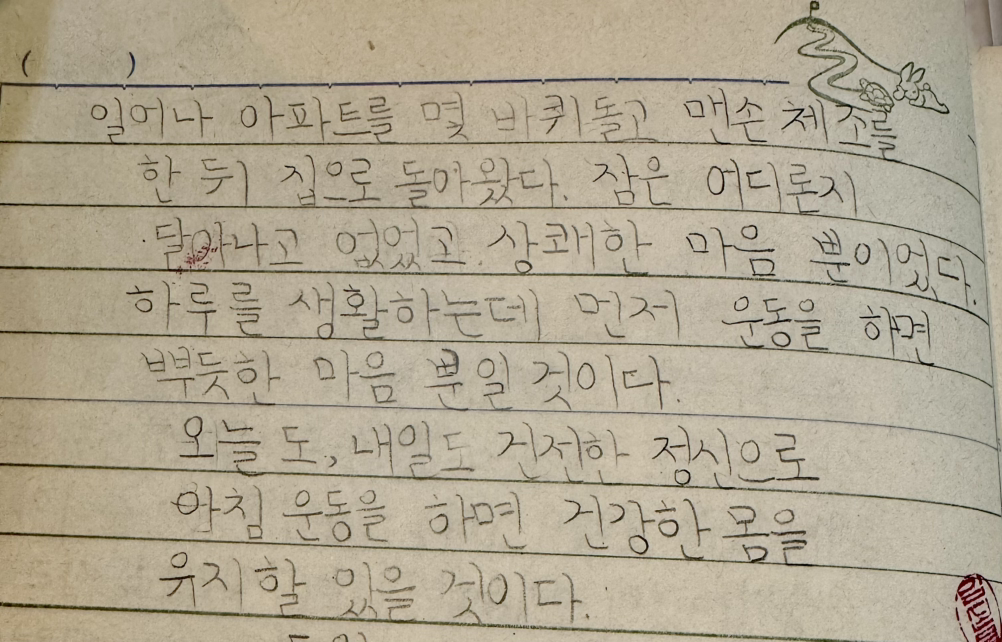 ( )
일어나 아파트를 몇 바퀴돌고 맨손 체조를
한 뒤 집으로 돌아왔다. 잠은 어디론지
달아나고 없었고. 상쾌한 마음 뿐이었다.
하루를 생활하는데 먼저 운동을 하면
뿌듯한 마음 뿐일 것이다.
오늘도, 내일도 건전한 정신으로
아침 운동을 하면 건강한 몸을
유지할 있을 것이다.